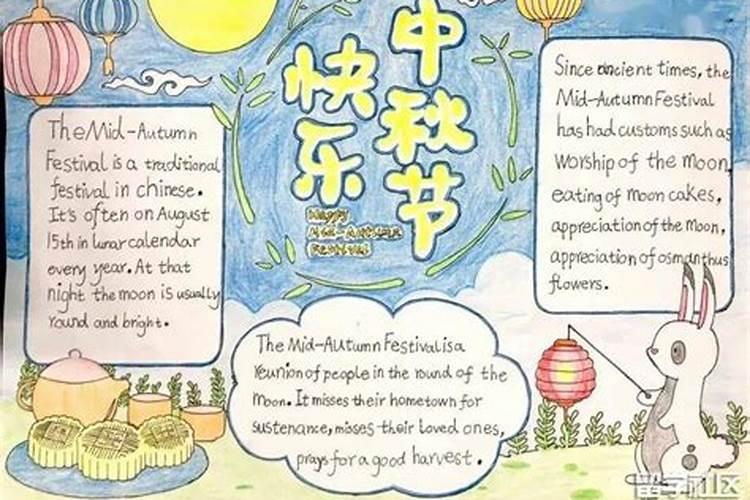 中秋节
快乐
Happy
Mid-Autumn
Festival
The Mid-Autumn
Festival is a traditional
festival in chinese.
It's often on August
15th in lunar calendar
every year. At that
night the moon is usually
round and bright.
Since ancient times, the
Mid-Autumn Festival
has had customs such as
worship of the moon,
eating of moon cakes,
appreciation of the moon,
appreciation of osmanthus
flowers.
The Mid-Autumn Festival is a
reunion of people in the round of the
moon. It misses their hometown for
sustenance, misses their loved ones,
prays for a good harvest.
留学社区